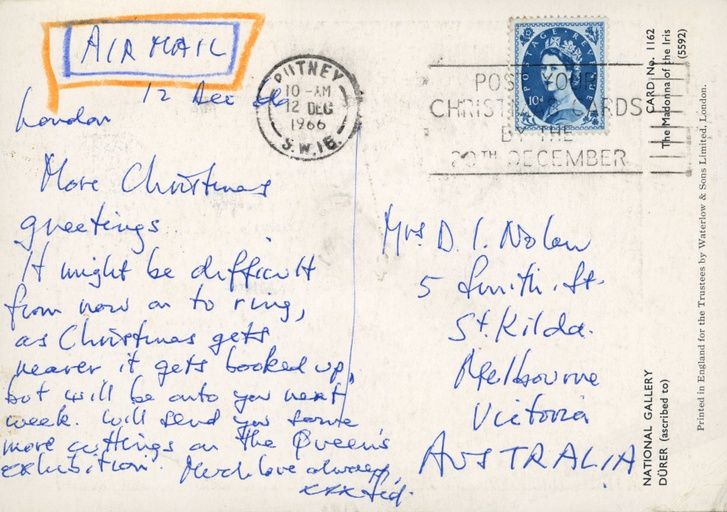 AIR MAIL
PUTNEY
10 - AM
12 DEC
1966
S.W.15.
POSTAGE REVENUE
10d
POST YOUR
CHRISTMAS CARDS
BY THE
20TH DECEMBER
12 Dec 66
London
More Christmas
greetings.
It might be difficult
from now on to ring,
as Christmas gets
nearer it gets booked up,
but will be onto you next
week. Will send you some
more cuttings on the Queen's
exhibition. Much love always,
xxx Sid.
Mrs D. I. Nolan
5 Smith. St.
St. Kilda.
Melbourne
Victoria
AUSTRALIA
CARD No. 1162
The Madonna of the Iris
(5592)
NATIONAL GALLERY
DÜRER (ascribed to)
Printed in England for the Trustees by Waterlow & Sons Limited, London.